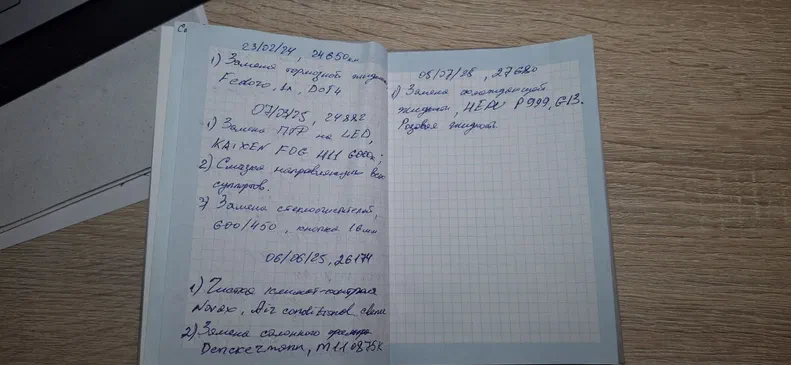 23/02/24, 24650км
1) Замена тормозной жидкости
Fedoro, 1л, DOT4
07/03/25, 24882
1) Замена ПТФ на LED,
KAIXEN FOG H11 6000к;
2) Смазка направляющих всех
суппортов.
3) Замена стеклоочистителей,
600/450, кнопка 16мм
06/06/25, 26174
1) Чистка климат-контроля
Novax, Air conditioner
2) Замена салонного фильтра
Denckermann, M110875K
05/07/25, 27680
1) Замена охлаждающей
жидкости, HEPU P999, G13.
Розовая жидкость.